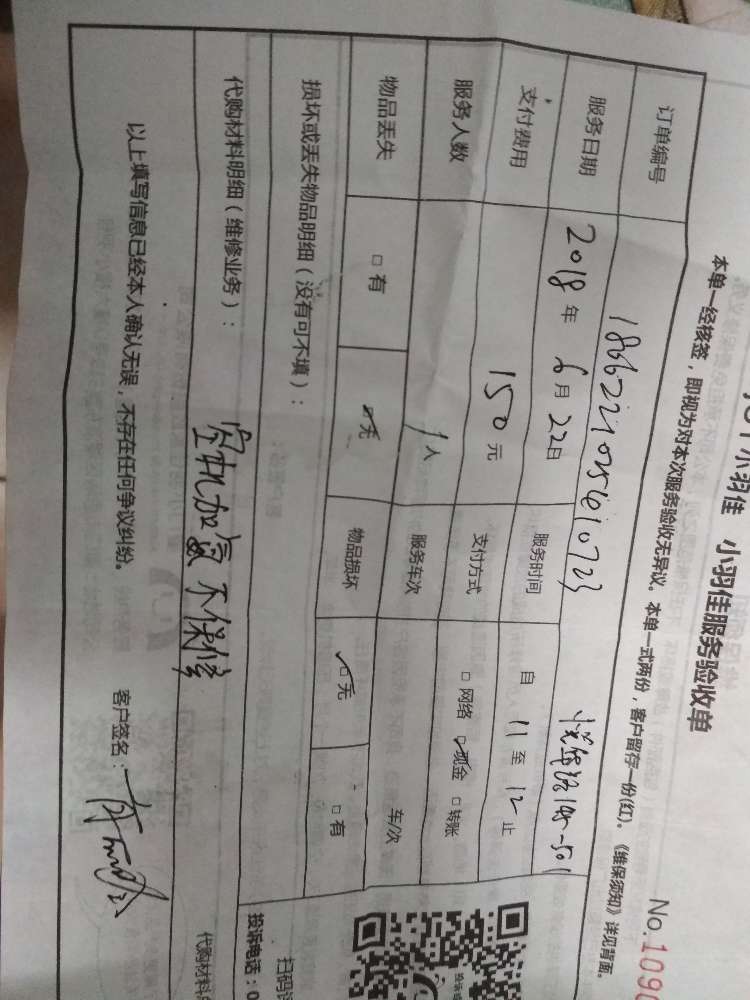 小羽佳 小羽佳服务验收单
No.109
本单一经核签，即视为对本次服务验收无异议。本单一式两份，客户留存一份(红)。《维保须知》详见背面。
订单编号
服务日期 2018年6月22日 服务时间 自11至12止
支付费用 150元 支付方式 □网络 ☑现金 □转账
服务人数 1人 服务车次 车/次
物品丢失 □有 ☑无 物品损坏 ☑无 □有
损坏或丢失物品明细（没有可不填）：
代购材料明细（维修业务）：
空机加氟 不保修
代购材料
以上填写信息已经本人确认无误，不存在任何争议纠纷。
客户签名：
扫码
投诉电话：0